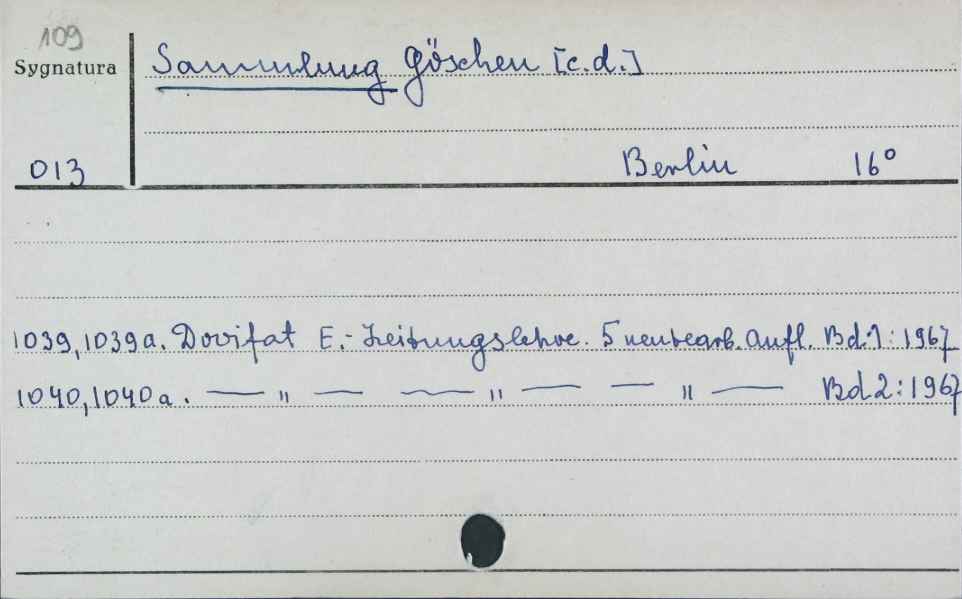 109
Sygnatura
Sammlung Göschen [c.d.]
013
Berlin 16°
1039, 1039a. Dovifat E.- Zeitungslehre. 5 neubearb. Aufl. Bd. 1: 1967
1040, 1040a. — " — — " — — " — Bd 2: 1967